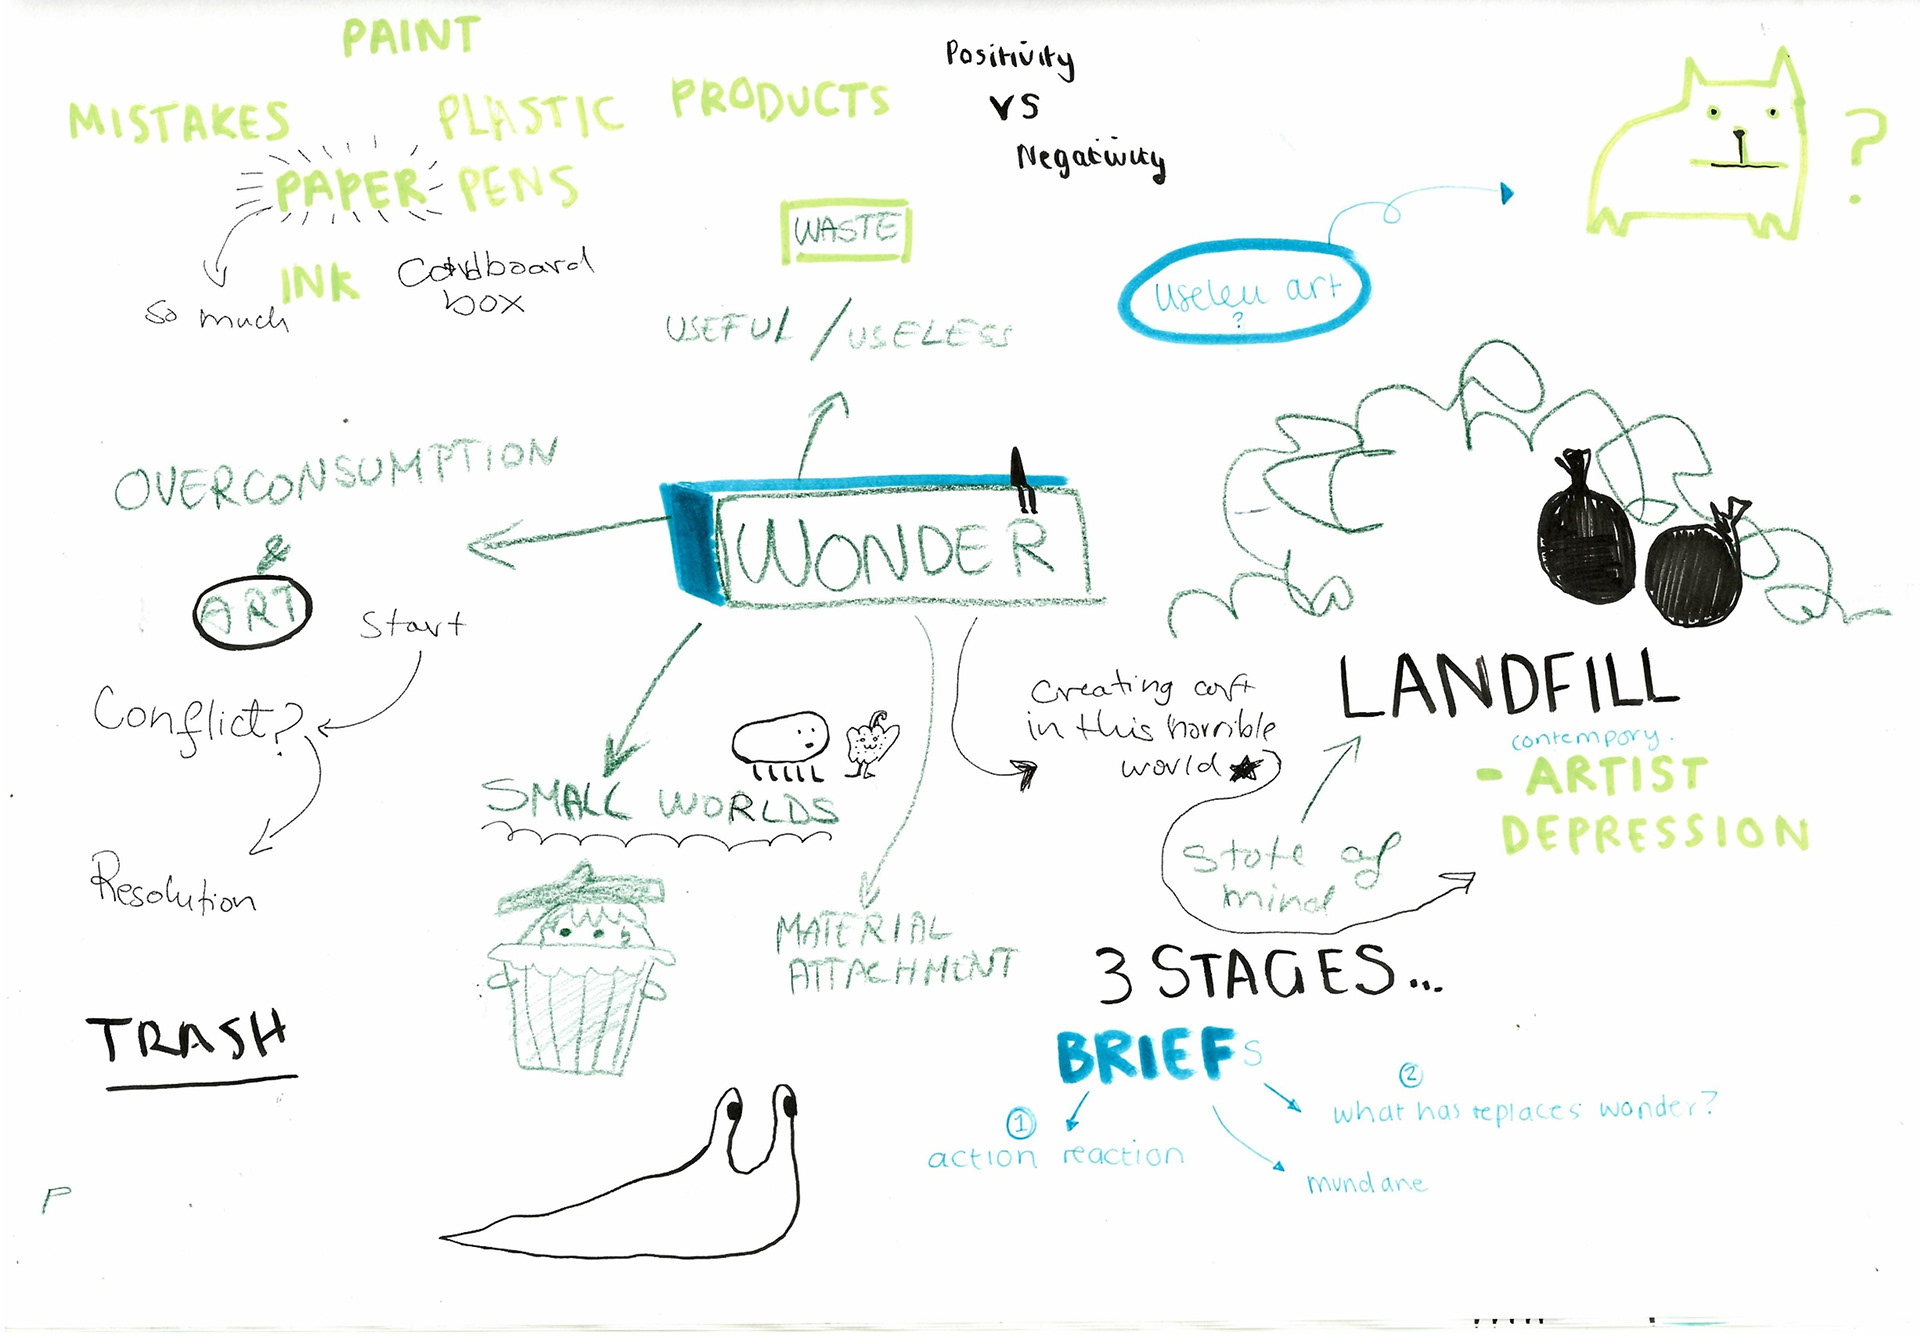 PAINT
MISTAKES
PLASTIC
PRODUCTS
PAPER
PENS
so much
INK
Cardboard
box
Positivity
VS
Negativity
WASTE
USEFUL / USELESS
?
?
OVERCONSUMPTION
&
ART
Start
Conflict?
Resolution
TRASH
WONDER
SMALL WORLDS
MATERIAL
ATTACHMENT
Creating art
in this horrible
world
LANDFILL
contempory.
- ARTIST
DEPRESSION
state of
mind
3 STAGES...
BRIEFS
1
action reaction
2
what has replaces wonder?
mundane
P